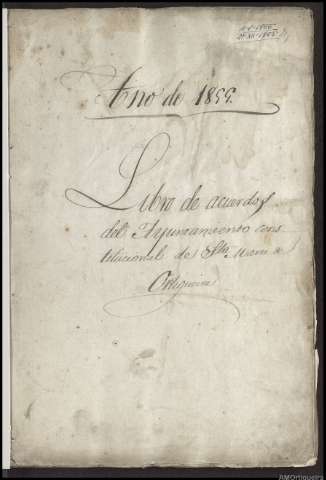 Año de 1855.
Libro de acuerdos
del Ayuntamiento cons
titucional de Sta Marta de
Ortigueira
AMOrtigueira